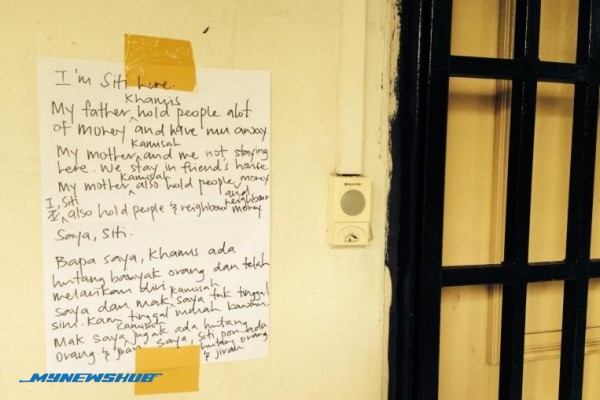 I'm Siti here.
My father Khamis hold people alot
of money and have run away
My mother Kamisah and me not staying
here. We stay in friend's house
My mother Kamisah also hold people money
I, Siti also hold people & neighbour and neighbour money
Saya, Siti.
Bapa saya, Khamis ada
hutang banyak orang dan telah
melarikan diri Kamisah
saya dan mak saya tak tinggal
sini. Kami tinggal rumah kawan.
Mak saya Kamisah jugak ada hutang
orang & jiran saya, Siti pon ada hutang orang
& jirah
MYNEWSHUB